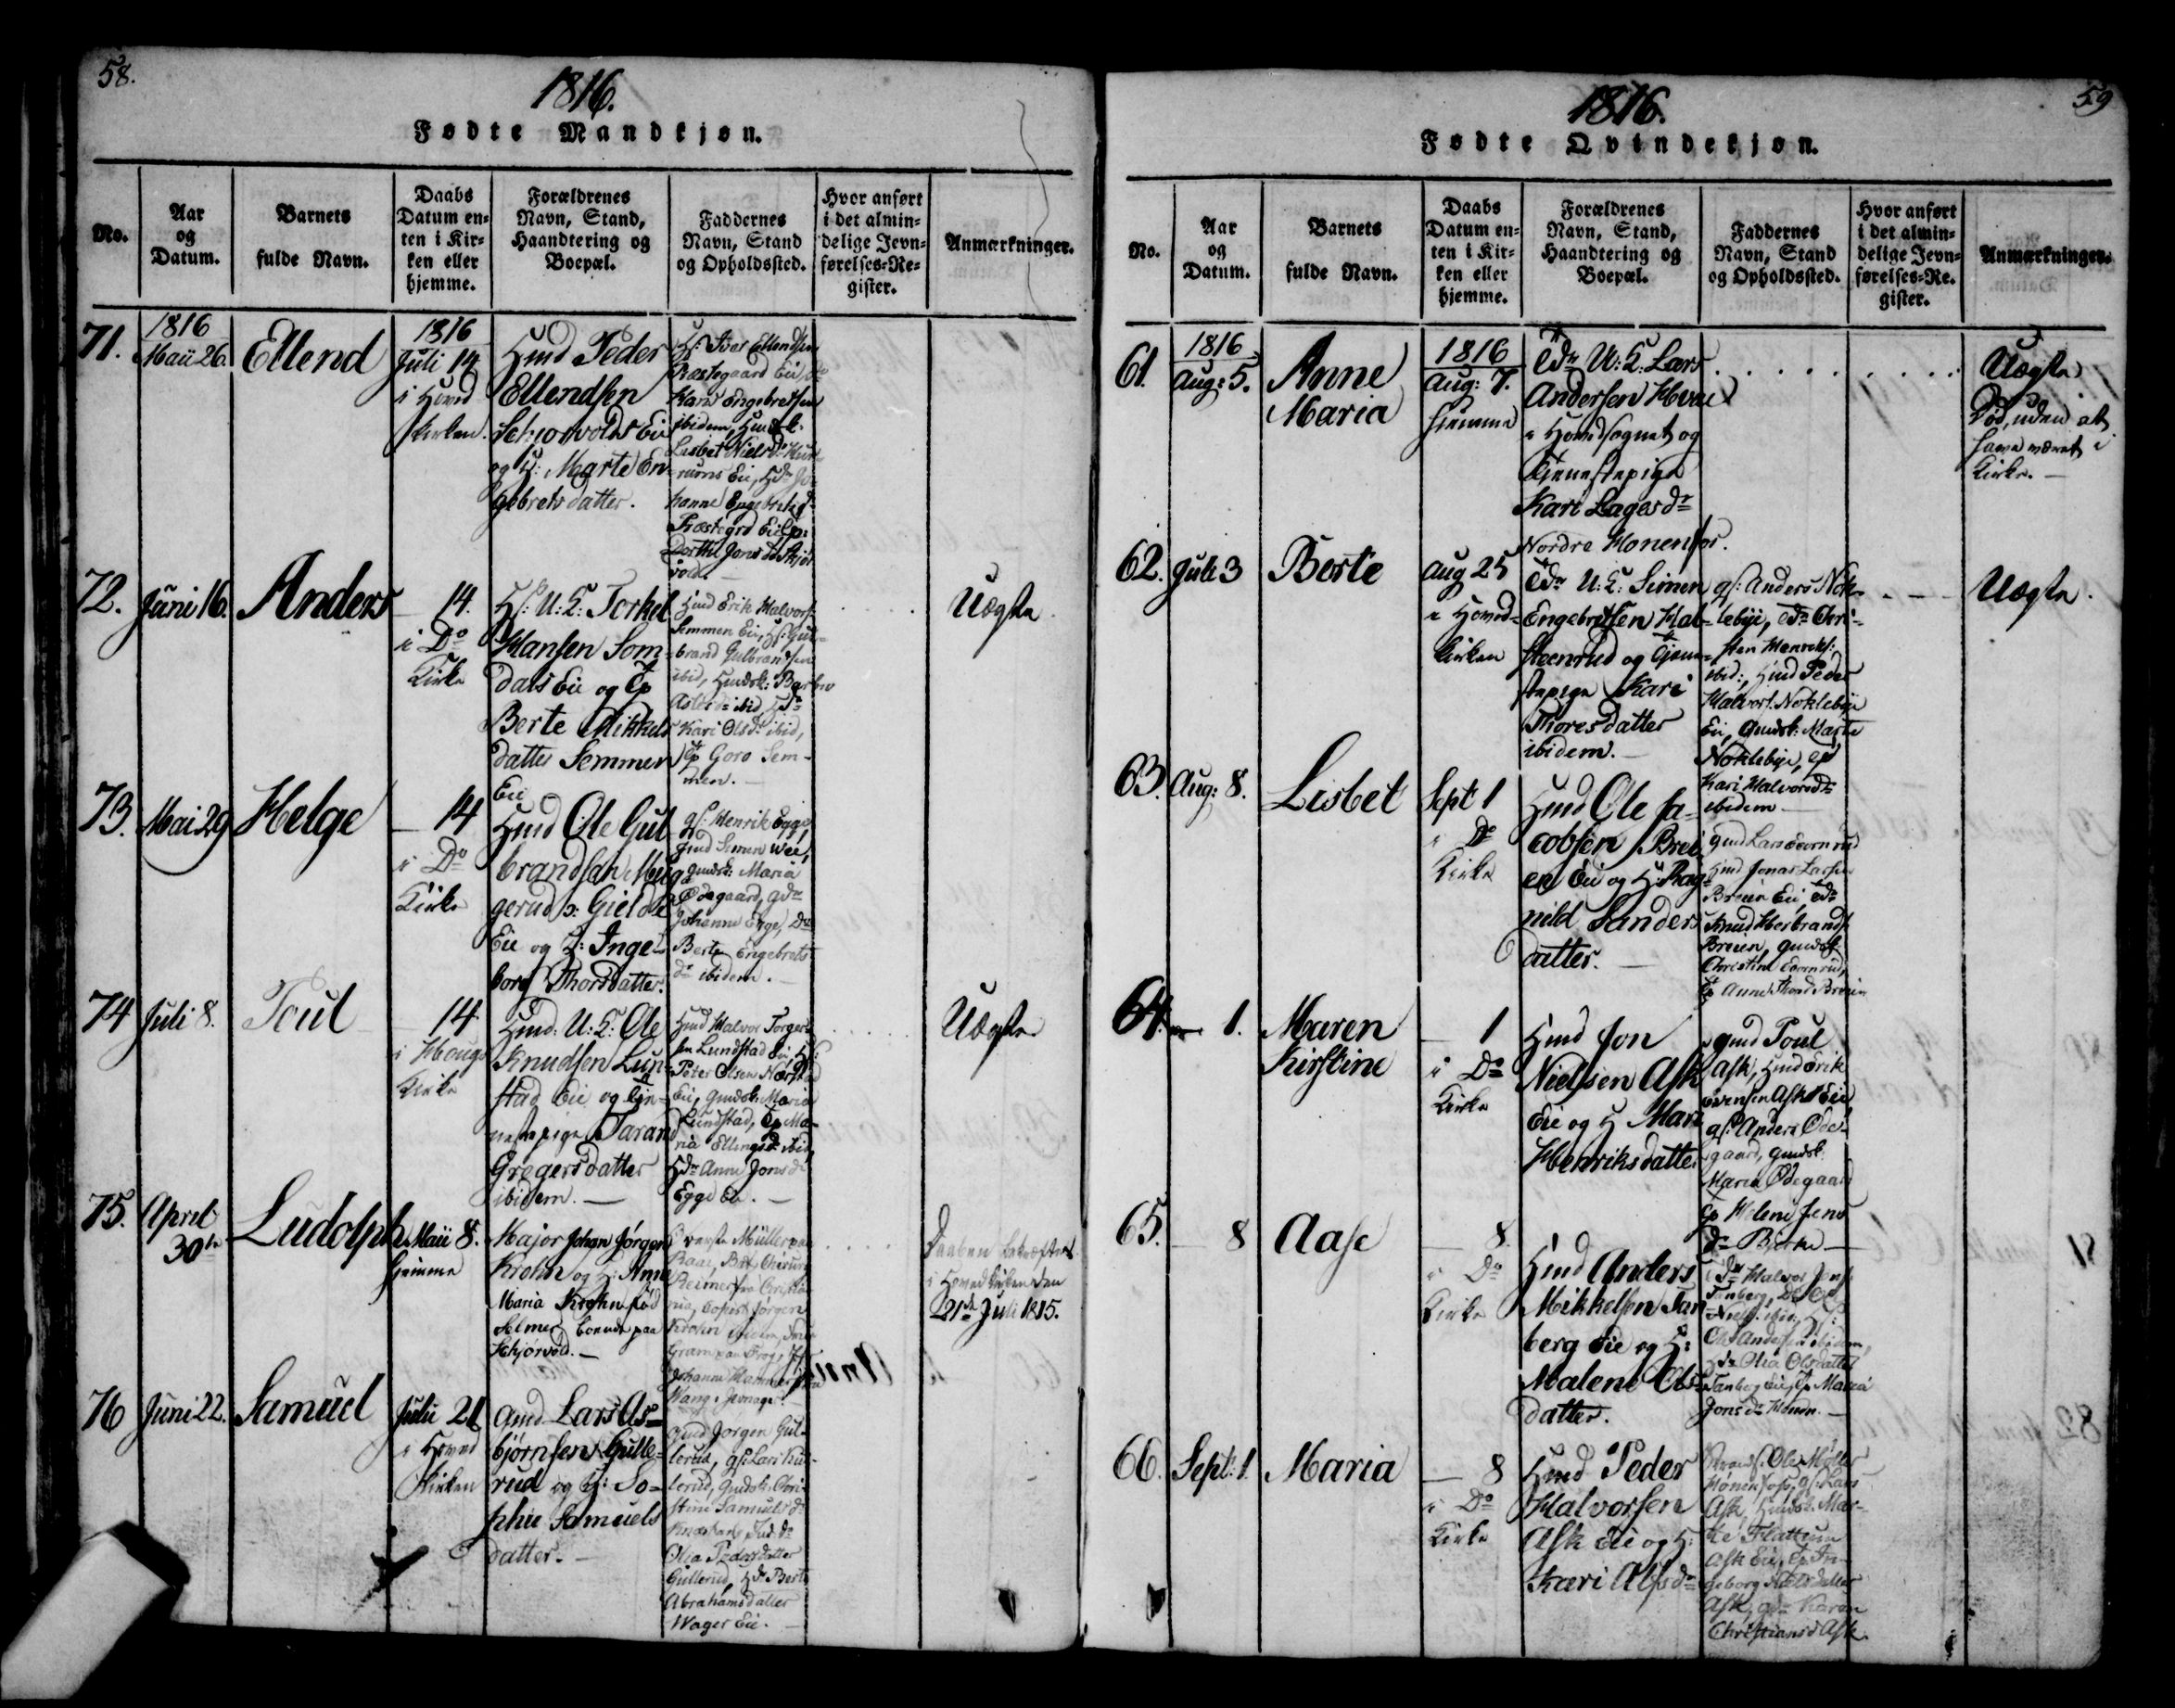 58.
1816.
Fødte Mandkjøn.
No.
Aar
og
Datum.
Barnets
fulde Navn.
Daabs
Datum en-
ten i Kir-
ken eller
hjemme.
Forældrenes
Navn, Stand,
Haandtering og
Boepæl.
Faddernes
Navn, Stand
og Opholdssted.
Hvor anført
i det almin-
delige Jevn-
førelses-Re-
gister.
Anmærkninger.
71.
1816
Maii 26.
Ellend
1816
Juli 14
i Hoved
kirken.
Hmd Peder
Ellendsen
Schjorvolds Eie
og H: Marte En-
gebrets datter.
Hs: Iver Ellendsen
Præstegaard Eie
Hans Engebretsen
ibidem,
Lisbet Niels
Eie,
hanne Engebrets
Præstegrd Eie
Dorthe Jons
vold.
72.
Juni 16.
Anders
14.
i Do
Kirke
Hs: U: K: Torkel
Hansen Som-
dals Eie og Tp
Berte Mikkels
datter Semmen
Eie
Hmd Erik Halvors:
Semmen Eie, Hs: Gul-
brand Gulbrandsen
ibid, Hmdsk: Barbro
ibid,
Kari Olsdr ibid,
Tp Goro Sem-
men.
Uægte
73.
Mai 29
Helge
14
i Do
Kirke
Hmd Ole Gul
brandsen Meg
gerud
Eie og H: Inge-
borg Thorsdatter.
gs: Henrik Egge,
Hmd Simen Wee,
gmdsk: Maria
Ødegaard,
Johanne Egge,
Berte Engebrets
dr ibidem.
74
Juli 8.
Poul
14
i Hougs
Kirke
Hmd: U: K: Ole
Knudsen Lun-
stad Eie og Tje-
nestepige Tarand
Gregersdatter
ibidem.
Hmd Halvor Torger
sen Lundstad Eie,
Peter Olsen
Eie, gmdsk: Maria
Lundstad, Tp Ma-
ria Ellingsdr ibid,
Anne Jonsdr
Egge Eie.
Uægte
75.
April
30te
Ludolph
Maii 8.
hjemme
Major Johan Jørgen
Krohn og H: Anne
Maria Krohn fød
Selmer boende paa
Schjørvold.
Müller paa
Reimers fra Christia-
nia, Copist Jørgen
Krohn
Gram paa
Johanne Hammer fra
Wang i Jevnager.
Daaben bekræftet
i Hovedkirken den
21de Juli 1815.
76
Juni 22.
Samuel
Julii 21
i Hoved
kirken
Gmd Lars As-
bjørnsen Gulle-
rud og H: So-
phie Samuels
datter.
Gmd Jørgen Gul-
lerud, gs: Lars Kul-
lerud, Gmdsk: Chri-
stine Samuelsdr
Olia Pedersdatter
Gullerud, Berte
Abrahamsdatter
Wager Eie.
59
1816.
Fødte Qvindekjøn.
No.
Aar
og
Datum.
Barnets
fulde Navn.
Daabs
Datum en-
ten i Kir-
ken eller
hjemme.
Forældrenes
Navn, Stand,
Haandtering og
Boepæl.
Faddernes
Navn, Stand
og Opholdssted.
Hvor anført
i det almin-
delige Jevn-
førelses-Re-
gister.
Anmærkninger.
61.
1816
Aug: 5.
Anne
Maria
1816
Aug: 7.
hjemme
Tdr U: K: Lars
Andersen Hvae
i Hovedsognet og
Tjenestepige
Kari Lagesdr
Nordre Honenfos.
Uægte
Død, uden at
have været i
Kirke.
62.
Juli 3
Berte
Aug 25
i Hoved-
kirken
Tdr U: K: Simen
Engebretsen Hal-
steenrud og Tjene-
stepige Kari
Thoresdatter
ibidem.
gs: Anders Nok-
lebye, Tdr Chri-
sten Henriks:
ibid:, Hmd Peder
Halvors: Noklebye
Eie, Gmdsk: Marte
Noklebye, Tp
Kari Halvorsdr
ibidem
Uægte.
63.
Aug: 8.
Lisbet
Sept 1
i Do
Kirke
Hmd Ole Ja-
cobsen Brei
en Eie og H: Rag-
nild Sanders
datter.
Gmd Lars
Hmd Jonas Larsen
Breien Eie,
Knud Herbrands:
Breien, Gmdsk:
Christine
Tp Anne Breien
64.
1.
Maren
Kirstine
1
i Do
Kirke
Hmd Jon
Nielsen Ask
Eie og H Mari
Henriksdatter
gmd Poul
Ask, Hmd Erik
Evensen Ask Eie
gs: Anders Øde-
gaard, gmdsk:
Maria Ødegaard
Tp Helene Jens
dr Bjerke
65.
8
Aase
8.
i Do
Kirke
Hmd Anders
Mikkelsen Tan-
berg Eie og H:
Malene Ols-
datter.
Tdr Halvor Jens:
Tanberg,
Niels: ibid,
Ole Anders: ibidem,
Olia Olsdatter
Tanberg Eie, Tp Maria
Jonsdr Honen.
66.
Sept: 1.
Maria
8
i Do
Kirke
Hmd Peder
Halvorsen
Ask Eie og H:
Kari Alfsdr
Ole Møller
Hønenfoss, gs: Lars
Ask, Hmdsk: Mar-
te Flattum
Ask Eie, Tp In-
geborg Nielsdatter
Ask, Karen
Christiansdr Ask.